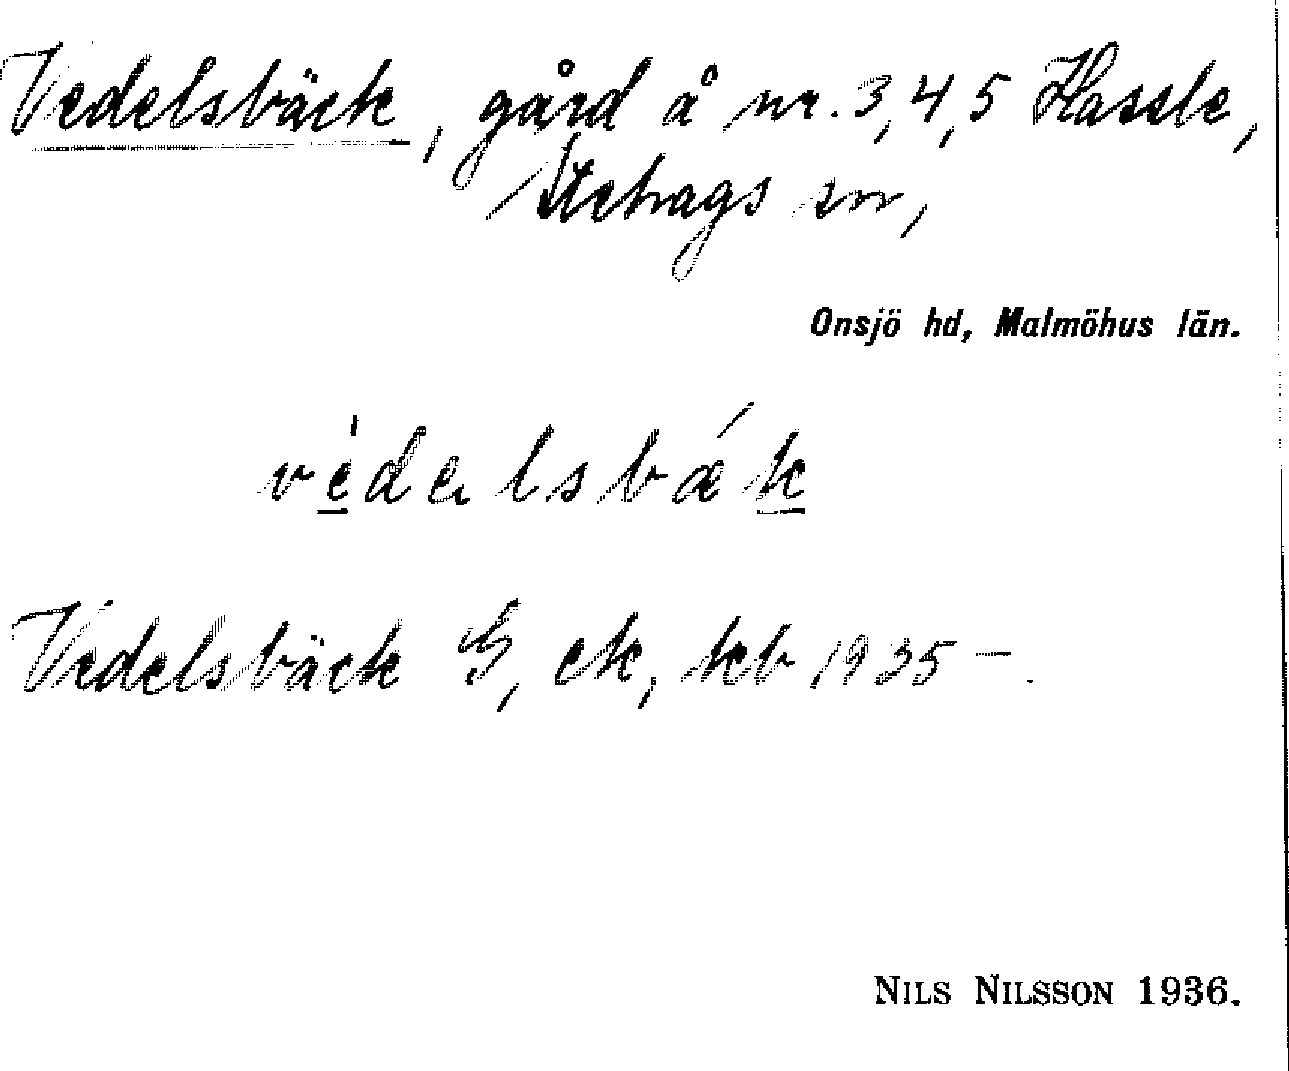 Vedelsbäck, gård å nr. 3, 4, 5 Hassle,
Stehags sn,
Onsjö hd, Malmöhus län.
vèdelsbǽk
Vedelsbäck G, ek, kb 1935 —.
NILS NILSSON 1936.